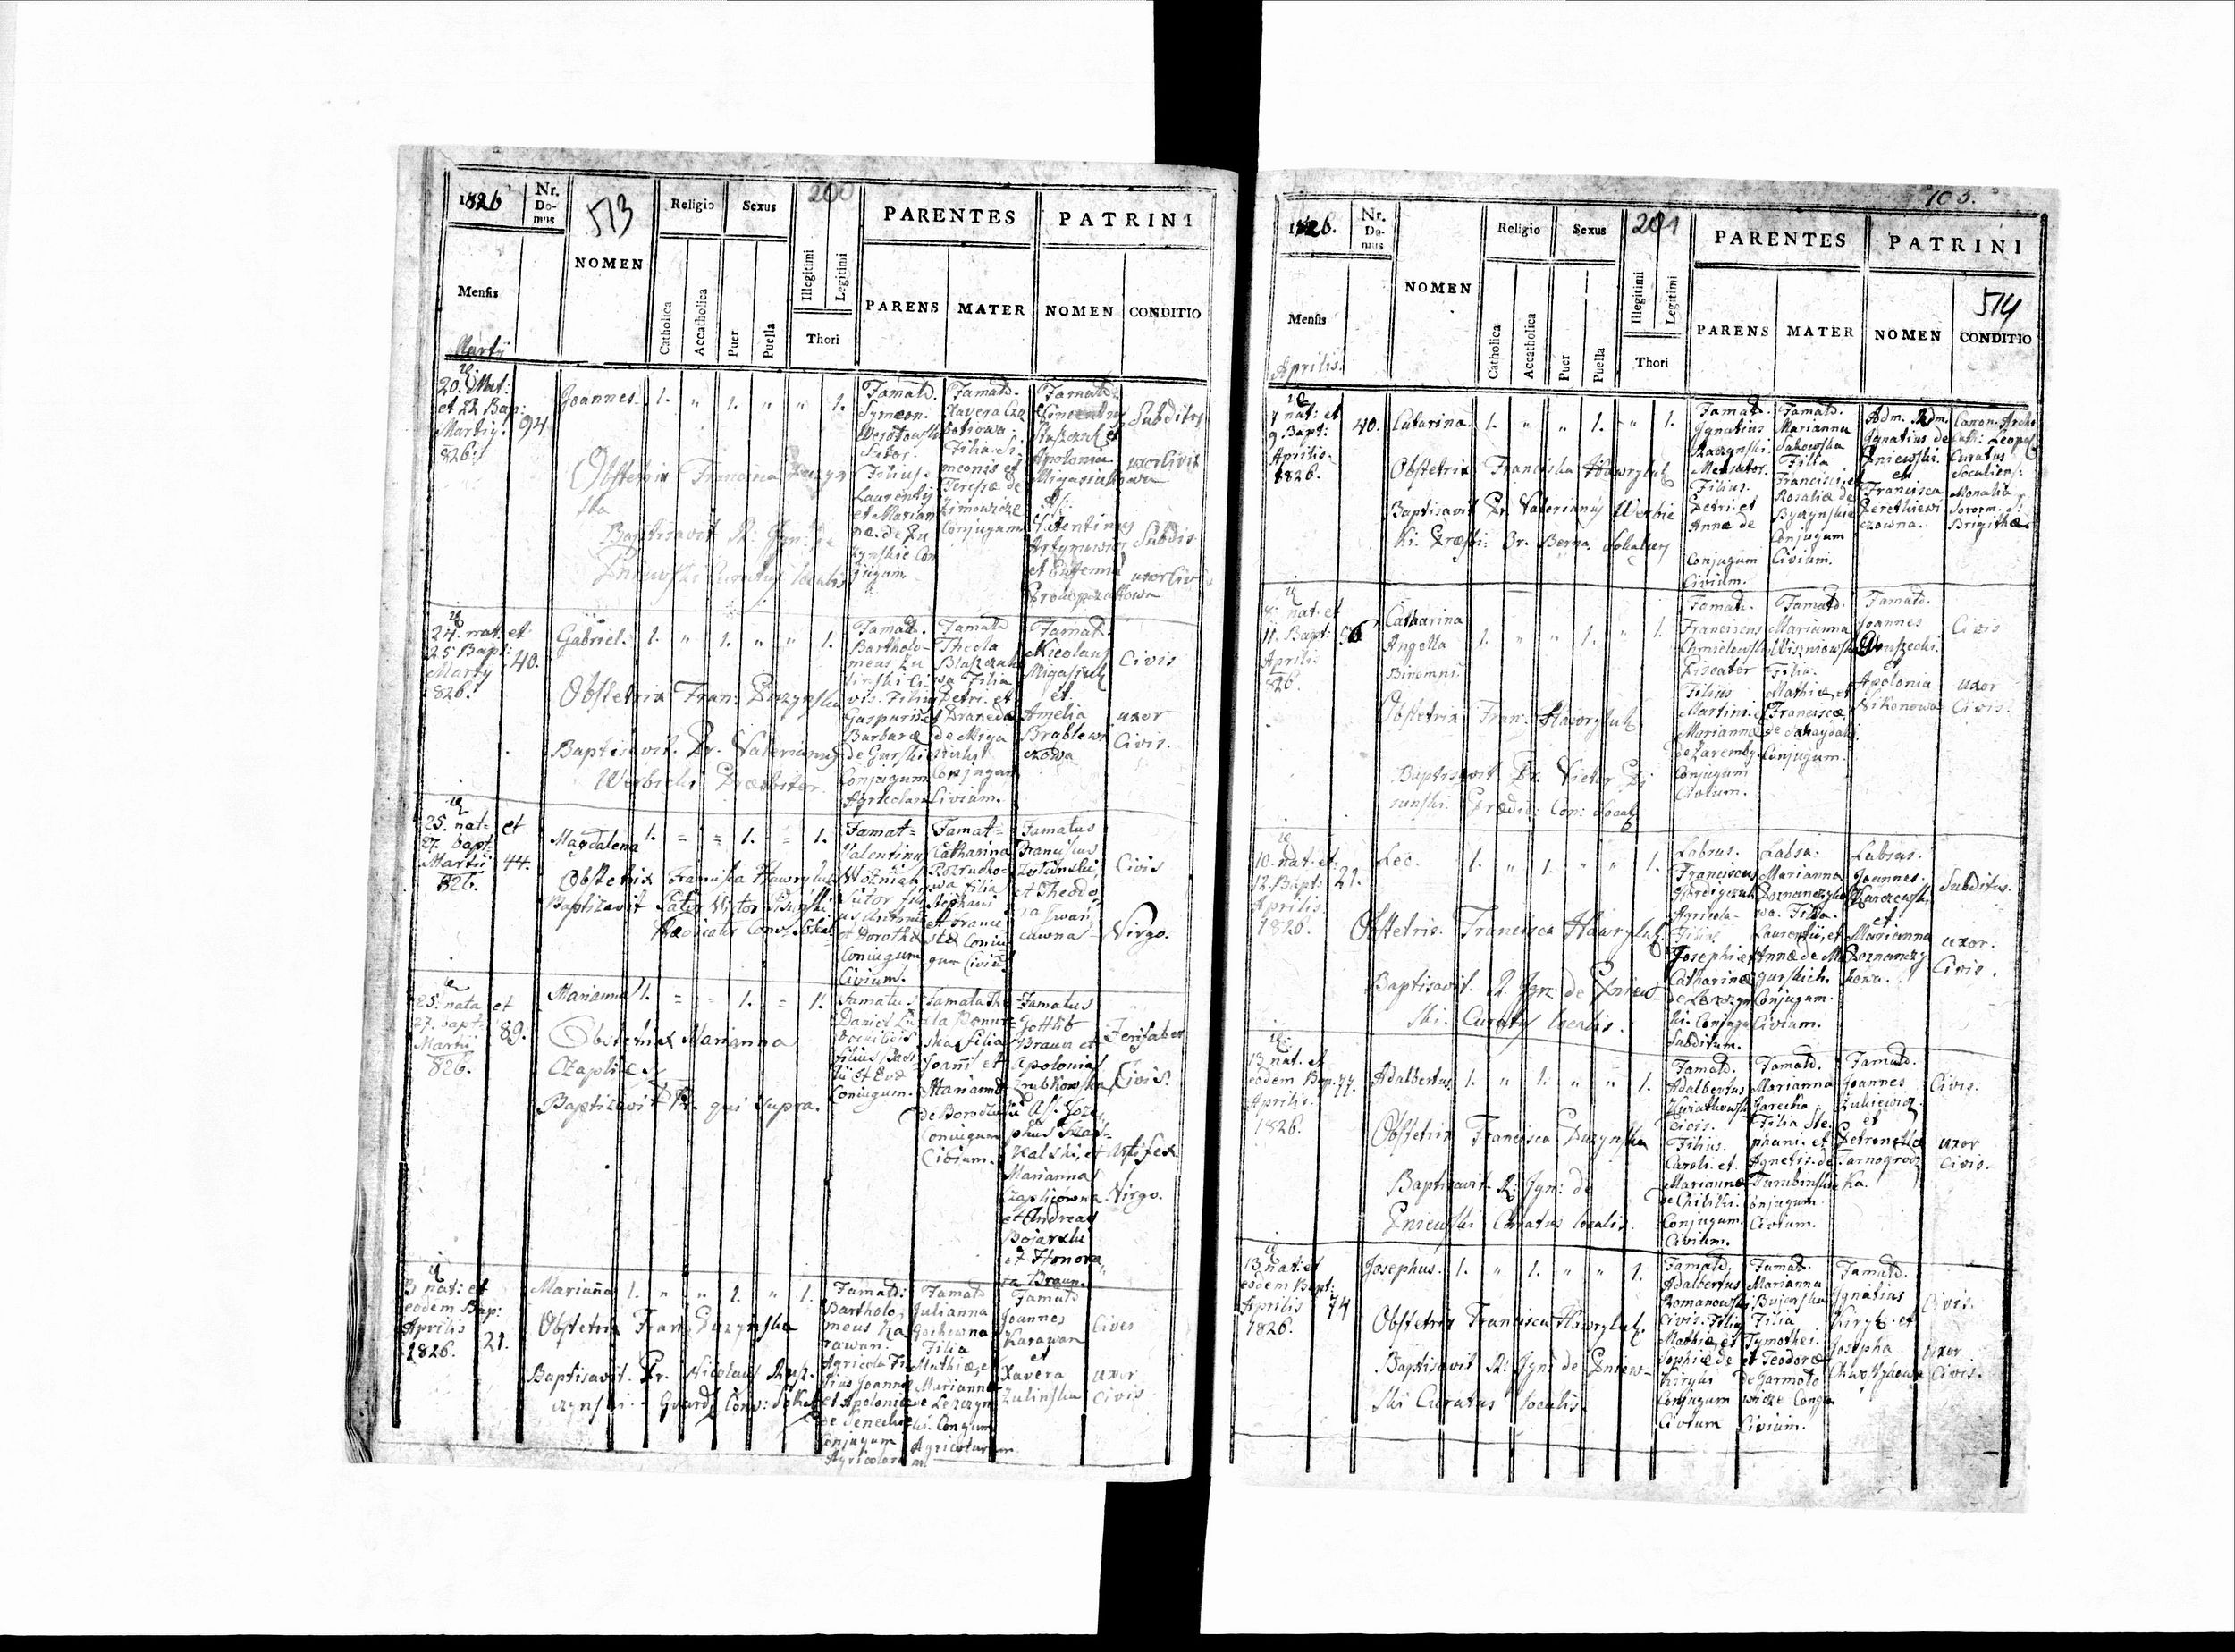 1826
Nr. Domus
513
NOMEN
Religio
Sexus
200
PARENTES
PATRINI
Mensis
Catholica
Accatholica
Puer
Puella
Illegitimi
Legitimi
Thori
PARENS
MATER
NOMEN
CONDITIO
Martii
20. Nat:
et 22 Bap:
Martii.
826.
94
Joannes.
1. " 1. " " 1.
Famatd.
Symeon.
Sutor.
Filius.
Laurentii
et Marian
næ. de Pu
zynskie Con
jugum
Famatd.
Xavera
Filia Si
meonis et
Teresæ de
Zimowicze
Conjugum
Famatd.
Apolonia
Subditus
uxor Civis
et Eufemia
Subdit
uxor Civis
Obstetrix Francisca Puzyn
ska
Baptisavit R: Ign: de
Pniewski Curatus localis
24. nat: et
25. Bapt:
Marty
826.
40.
Gabriel.
1. " 1. " " 1.
Famatd.
Bartholo-
meus Zu
linski Ci
vis. Filius
Gasparis et
Barbaræ
de Gurski
Conjugum
Agricolarum
Famatd
Thecla
Blaszczuko
wa Filia
Petri. et
de Miga
Conjugum
Civium.
Famat.
Nicolaus
Migasiuk
et
Amelia
Brablewi
czowa
Civis
uxor
Civis.
Obstetrix Fran: Puzynska
Baptisavit. Pr. Valerianus
Werbicki Præsbiter.
25. nat= et
27. bapt=
Martii
826.
44.
Magdalena
1. = = 1. = 1.
Famat=
Valentinus
Wozniak
Sutor fili
us Antonii
et Dorotheæ
Coniugum
Civium.
Famat=
Catharina
wa filia
Stephani
et Franci
scæ Coniu
gum Civiu
Famatus
Franciscus
et Theodo
ra Iwań
cuwna
Civis
Virgo.
Obstetrix Francisca Hawryluk
Baptizavit Pater Victor Pisunski
Prædicator Conv. Sokal
25. nata et
27. bapt.
Martii
826.
89.
Marianna
1. = = 1. = 1.
Famatus
Daniel
filius
et Evæ
Coniugum.
Famata The
cla
filia
Joanni et
Mariannæ
Coniugum
Civium.
Famatus
Gottlib
Braun et
Apolonia
Zrubkowska
As: Jose
phus Skas-
kalski, et
Marianna
Czaplicówna
et Andreas
Bojarski
et Honora
ta Braun.
Ferrifaber
Civis.
Artifex
Virgo.
Obstetrix Marianna
Czaplic
Baptizavit Pr. qui supra.
3 nat: et
eodem Bap:
Aprilis
1826.
21.
Marianna
1. " " 1. " 1.
Famatd:
Bartholo
meus Ka
rawan.
Agricola Fi
lius Joannis
et Apoloniæ
de Senecka
Conjugum
Agricolarum
Famatd
Julianna
Gockowna
Filia
Mathiæ et
Mariannæ
de Leszczyn
ski. Conjugum
Agricolarum
Famatd
Joannes
Karawan
et
Xavera
Zulinska
Cives
uxor
Civis
Obstetrix Fran: Puzynska
Baptisavit. Pr. Nicolaus Rusz.
czynski. Guard Conv: Sokal
103.
1826.
Nr. Domus
NOMEN
Religio
Sexus
201
PARENTES
PATRINI
514
Mensis
Catholica
Accatholica
Puer
Puella
Illegitimi
Legitimi
Thori
PARENS
MATER
NOMEN
CONDITIO
Aprilis.
7 nat: et
9 Bapt:
Aprilis.
1826.
40.
Catarina.
1. " " 1. " 1.
Famatd.
Ignatius
Raczynski.
Mercator.
Filius.
Petri. et
Annæ de
Conjugum
Civium.
Famatd.
Marianna
Sakowska
Filia
Francisci et
Rosaliæ de
Byszynskie
Conjugum
Civium.
Adm. Rdm.
Ignatius de
Pniewski.
et
Francisca
Perethiewi
czowna.
Canon. Archi
Cath: Leopol
Curatus
Socaliens:
Monalia
Sororm. S:
Brigithæ
Obstetrix Franciska Hawryluk
Baptisavit Pr Valerianus Werbic
ki. Præsbi: Or. Berna. Sokaliens
8. nat. et
11. Bapt:
Aprilis
826.
Catharina
Angella
Binomni.
1. " " 1. " 1.
Famatd.
Franciscus
Chmielewski
Piscator
Filius
Martini. et
Mariannæ
de Zaremby
Conjugum
Civium.
Famatd.
Marianna
Wiszniowska
Filia
Mathiæ et
Franciscæ
de Sahaydak
Conjugum.
Famatd.
Joannes
Apolonia
Nikonowa
Civis
uxor
Civis.
Obstetrix Fran: Hawryluk
Baptisavit Pr. Victor Pi
sunski. Prædic: Con: Socal
10. nat. et
12. Bapt:
Aprilis
1826.
21.
Leo.
1. " 1. " " 1.
Labsus.
Franciscus
Agricola-
Filius
Josephi et
Catharinæ
de Leszczyn
ki. Conjugu
Subditum.
Labsa.
Marianna
Poznanczyko
wa. Filia
Laurentii, et
Annæ de Ma
gurskich.
Conjugum.
Civium.
Labsus.
Joannes.
Karczewski
et
Marianna
Poznanczy
kowa.
Subditus.
uxor.
Civis.
Obstetrix. Francisca Hawryluk.
Baptisavit. R. Ign: de Pniews-
ski. Curatus localis.
13 nat. et
eodem Bap.
Aprilis.
1826.
77.
Adalbertus.
1. " 1. " " 1.
Famatd.
Adalbertus
Kwiatkowski
Civis.
Filius.
Caroli. et
Mariannæ
de Chilikii.
Conjugum.
Civium.
Famatd.
Marianna
Garecka.
Filia Ste-
phani. et
Agnetis. de
Turubinskie
Conjugum
Civium.
Famatd.
Joannes
Zukiewicz
et
Petronella
Tarnogrodz
ka.
Civis.
uxor
Civis.
Obstetrix Francisca Puzynska
Baptisavit R: Ign: de
Pniewski Curatus localis.
13 nat: et
eodem Bapt:
Aprilis
1826.
74
Josephus.
1. " 1. " " 1.
Famatd.
Adalbertus
Romanowski
Civis. Filius
Mathiæ et
Sophiæ de
Kiryki
Conjugum
Civium
Famatd.
Marianna
Bujenska
Filia
Tymothei.
et Teodoræ
de Jarmolo
wicze Conju
Civium.
Famatd.
Ignatius
Kiryk. et
Josepha
Civis.
uxor
Civis.
Obstetrix Francisca Hawryluk.
Baptisavit R: Ign: de Pniew-
ski Curatus localis.